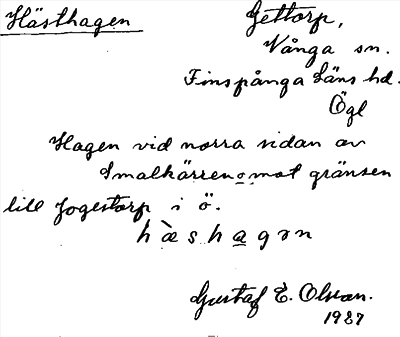 Hästhagen
Gettorp,
Vånga sn.
Finspånga Läns hd.
Ögl
Hagen vid norra sidan av
Smalkärren o. mot gränsen
till Jogestorp i ö.
hæ̀shagən
Gustaf E. Olsson.
1927